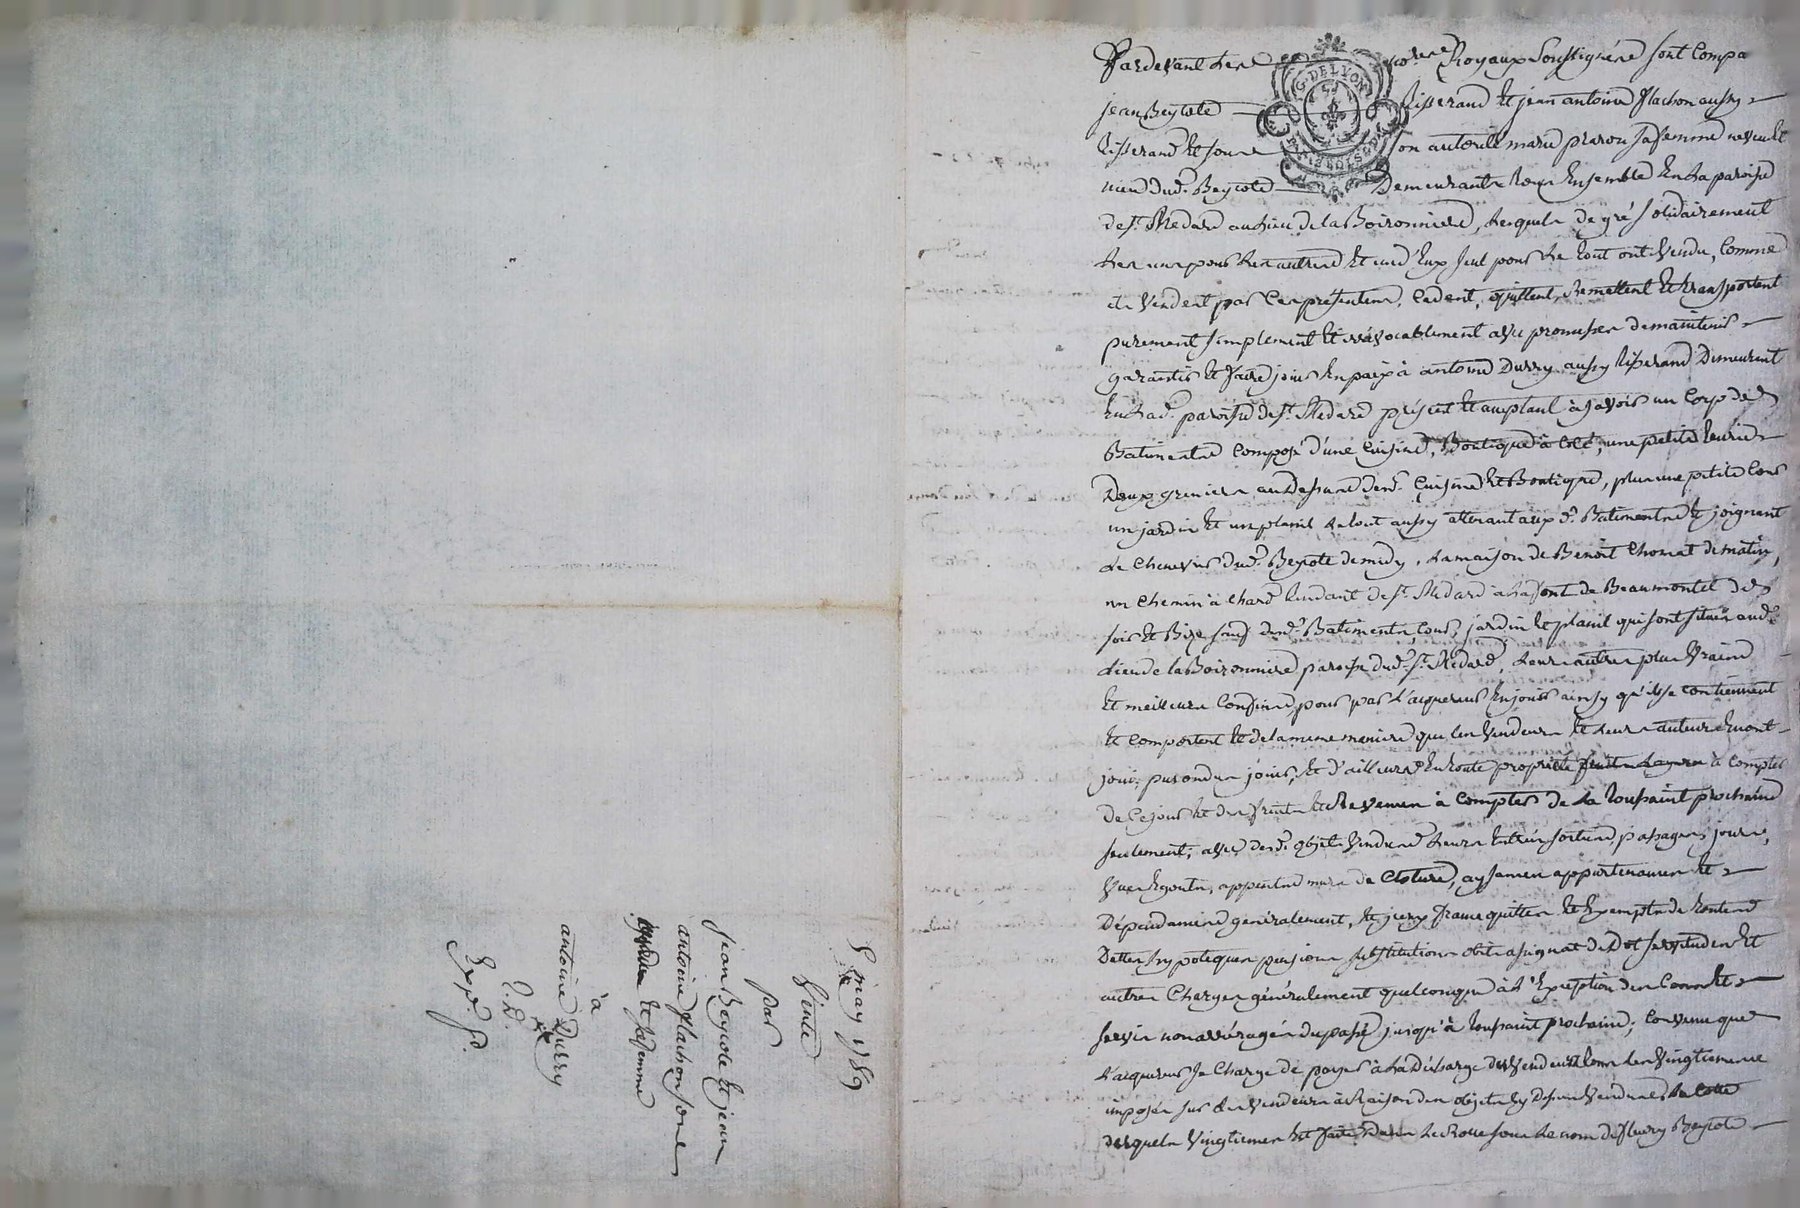 Pardevant les no.res Royaux Soussignés sont Compa
jean Beyssole Tisserand et jean antoine flachon aussy
Tisserand et sous son autorité marie prarou sa femme neveu et
niece dud.t Beyssole Demeurants tous Ensemble En la paroisse
de s.t Medard au lieu de la Boironniere, lesquels de gré solidairement
les uns pour les autres et un d'Eux seul pour le tout ont vendu, Comme
ils vendent par Ces presentes, Cedent, quittent, Remettent et transportent
purement simplement et irrévocablement avec promesse de maintenir
garantir et faire jouir En paix à antoine Durry aussy Tisserand Demeurant
En lad.e paroisse de s.t Medard présent et acceptant à savoir un Corp de
Batiments Composé d'une Cuisine, Boutique à Coté, une petite Ecurie
Deux greniers au Dessus desd.s Cuisine et Boutique, plus une petite Cour
un jardin et un plassil le tout aussy attenant aux d.s Batiments et joignant
le Chenevier dud.t Beyssole de midy, la maison de Benoit Chomat de matin,
un Chemin à Chard tendant de s.t Medard à la font de Beaumontel de
soir et Bize sauf desd.s Batiments, Cour, jardin et plassil qui sont situés aud.t
lieu de la Boironniere paroisse dud.t s.t Medard, leurs autres plus Vrais
et meilleurs Confins, pour par l'acquereur En jouir ainsy qu'ils se Contiennent
et Comportent et de la meme maniere que les Vendeurs et leurs auteurs En ont
joui, pu ou du jouir, et d'ailleurs En toute propriété à Compter
de Ce jour et des fruits et Revenus à Compter de la toussaint prochaine
seulement; avec desd.s objets Vendus leurs Entrées sorties, passages, jours,
Vues Egouts, appentis murs de Cloture, aysances appartenances et
Dépendances généralement, et jceux francs quittes et Exempts de toutes
Dettes hypoteques pensions substitutions obits assignat de Dot servitudes et
autres Charges généralement quelconques à l'Exception des Cens et
servis non arréragés du passé jusqu'à toussaint prochaine; Convenu que
l'acquereur se Charge de payer à la Décharge des Vendeurs tous les Vingtiemes
imposés sur les Vendeurs à Raison des objets Cy Dessus Vendus, la Cotte
desquels Vingtiemes est faite dans les Rolles sous le nom de fleury Beyssole
8 may 1789
Vente
par
jean Beyssole et jean
antoine flachon sone
et sa femme
à
antoine Durry
Exp.d